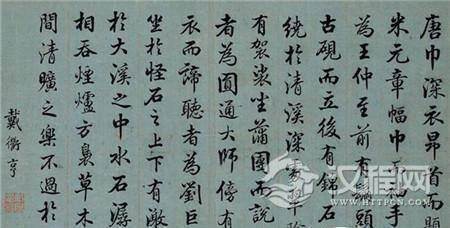 唐巾深衣昂首而題
米元章幅巾手
為王仲至前有頭
古硯而立後有錦石
繞於清溪深翠陰
有袈裟坐蒲團而說
者為圓通大師傍有
衣而諦聽者為劉巨
坐於怪石之上下有激
於大溪之中水石潺
相吞煙爐方裊草木
間清曠之樂不過於
戴衢亨
HTTPCN.COM